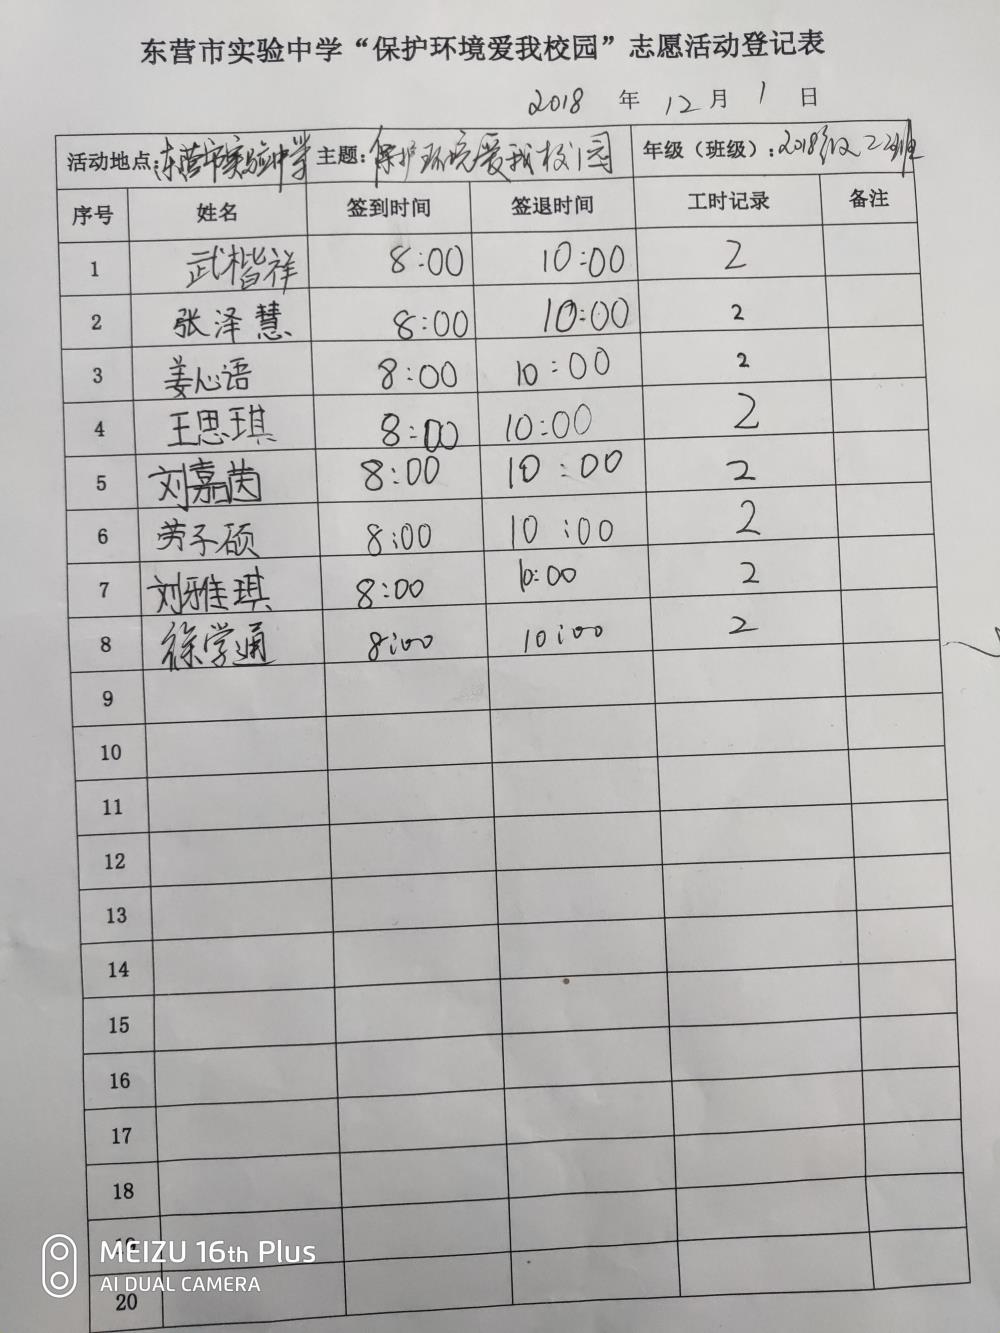 东营市实验中学“保护环境爱我校园”志愿活动登记表
2018 年 12 月 1 日
活动地点:东营市实验中学 主题:保护环境爱我校园 年级（班级）:2018级22班
序号 姓名 签到时间 签退时间 工时记录 备注
1 武楷祥 8:00 10:00 2
2 张泽慧 8:00 10:00 2
3 姜心语 8:00 10:00 2
4 王思琪 8:00 10:00 2
5 刘嘉茵 8:00 10:00 2
6 劳子硕 8:00 10:00 2
7 刘雅琪 8:00 10:00 2
8 徐学通 8:00 10:00 2
9
10
11
12
13
14
15
16
17
18
19
MEIZU 16th Plus
AI DUAL CAMERA
20